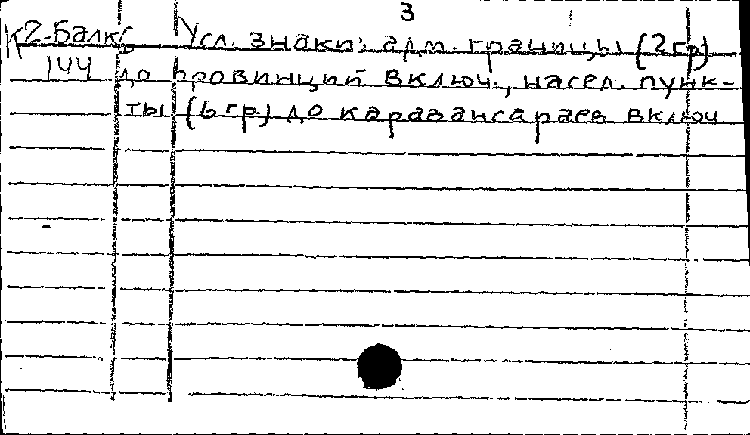 3
К2-Балк Усл. знаки: адм. границы (2 гр)
144 до провинций включ., насел. пунк-
ты (6 гр) до караван-сараев включ